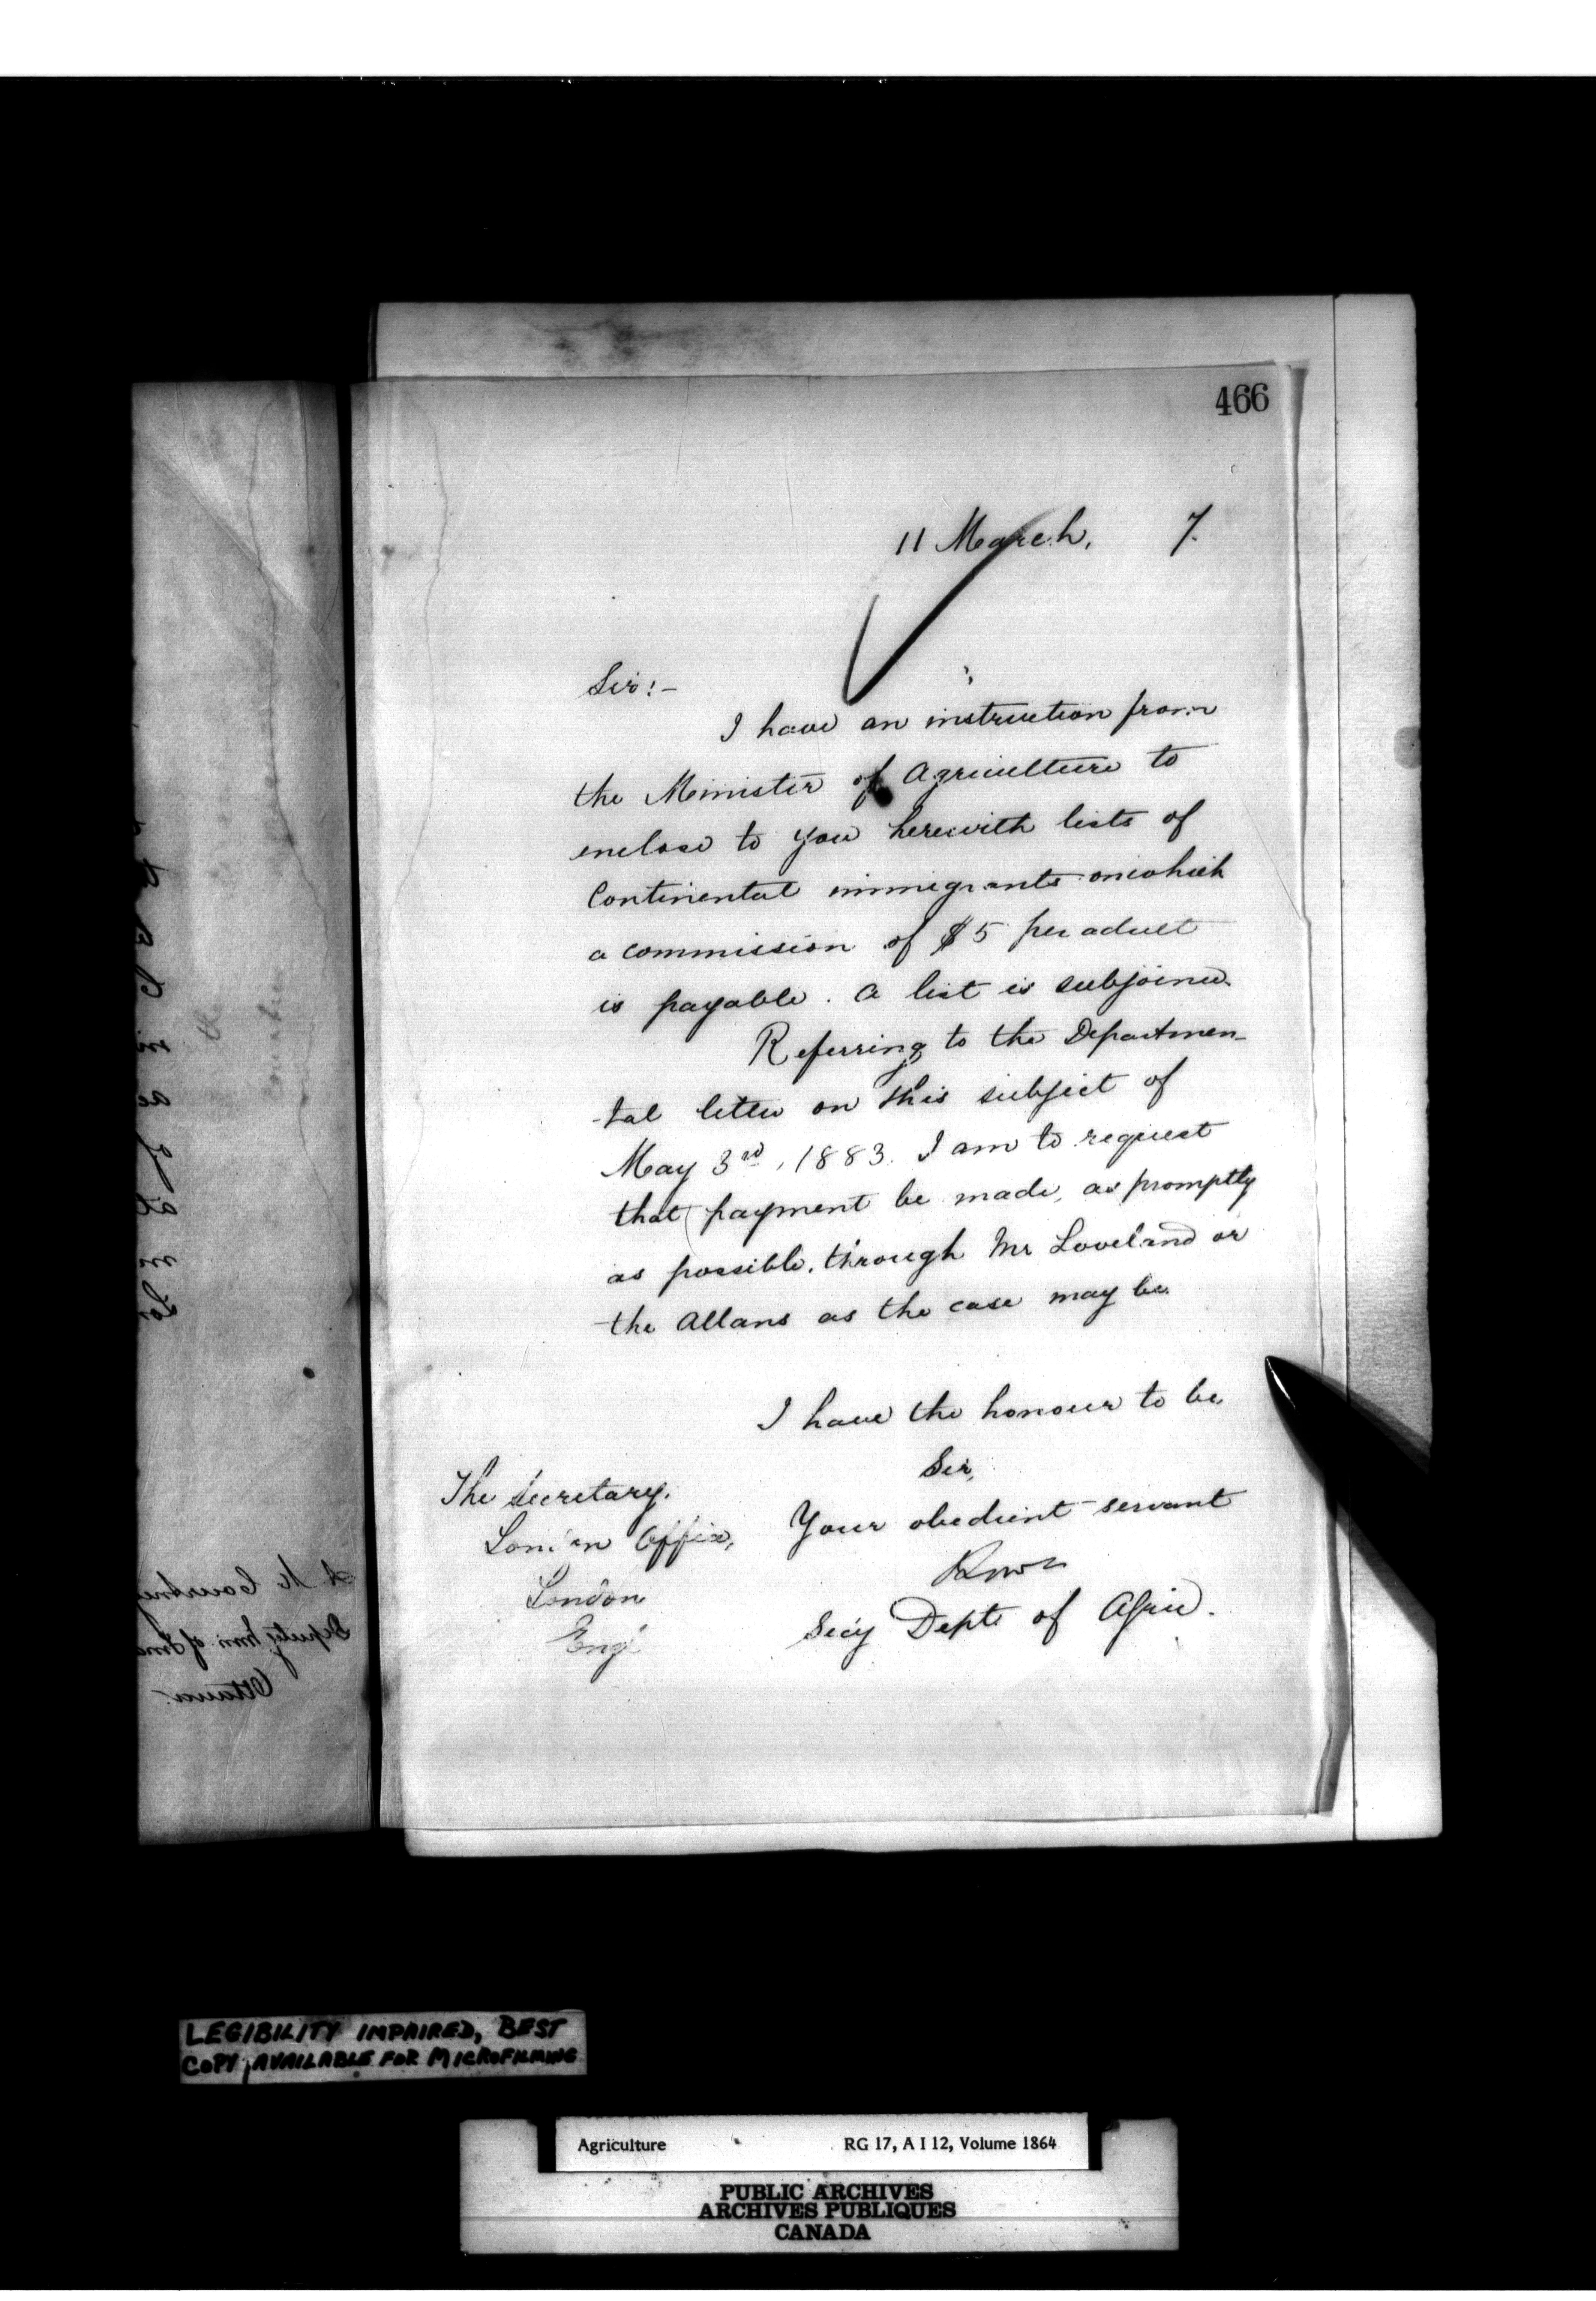 466
11 March, 7.
Sir:-
I have an instruction from
the Minister of Agriculture to
enclose to you herewith lists of
Continental immigrants on which
a commission of $5 per adult
is payable. A list is subjoined.
Referring to the Departmen-
tal letter on this subject of
May 3rd, 1883. I am to request
that payment be made, as promptly
as possible, through Mr Loveland or
the Allans as the case may be.
I have the honour to be,
Sir,
Your obedient servant
Secy Dept of Agric.
The Secretary.
London Office,
London
Engd
Deputy Min. of
Ottawa.
LEGIBILITY IMPAIRED, BEST
COPY AVAILABLE FOR MICROFILMING
Agriculture RG 17, A I 12, Volume 1864
PUBLIC ARCHIVES
ARCHIVES PUBLIQUES
CANADA